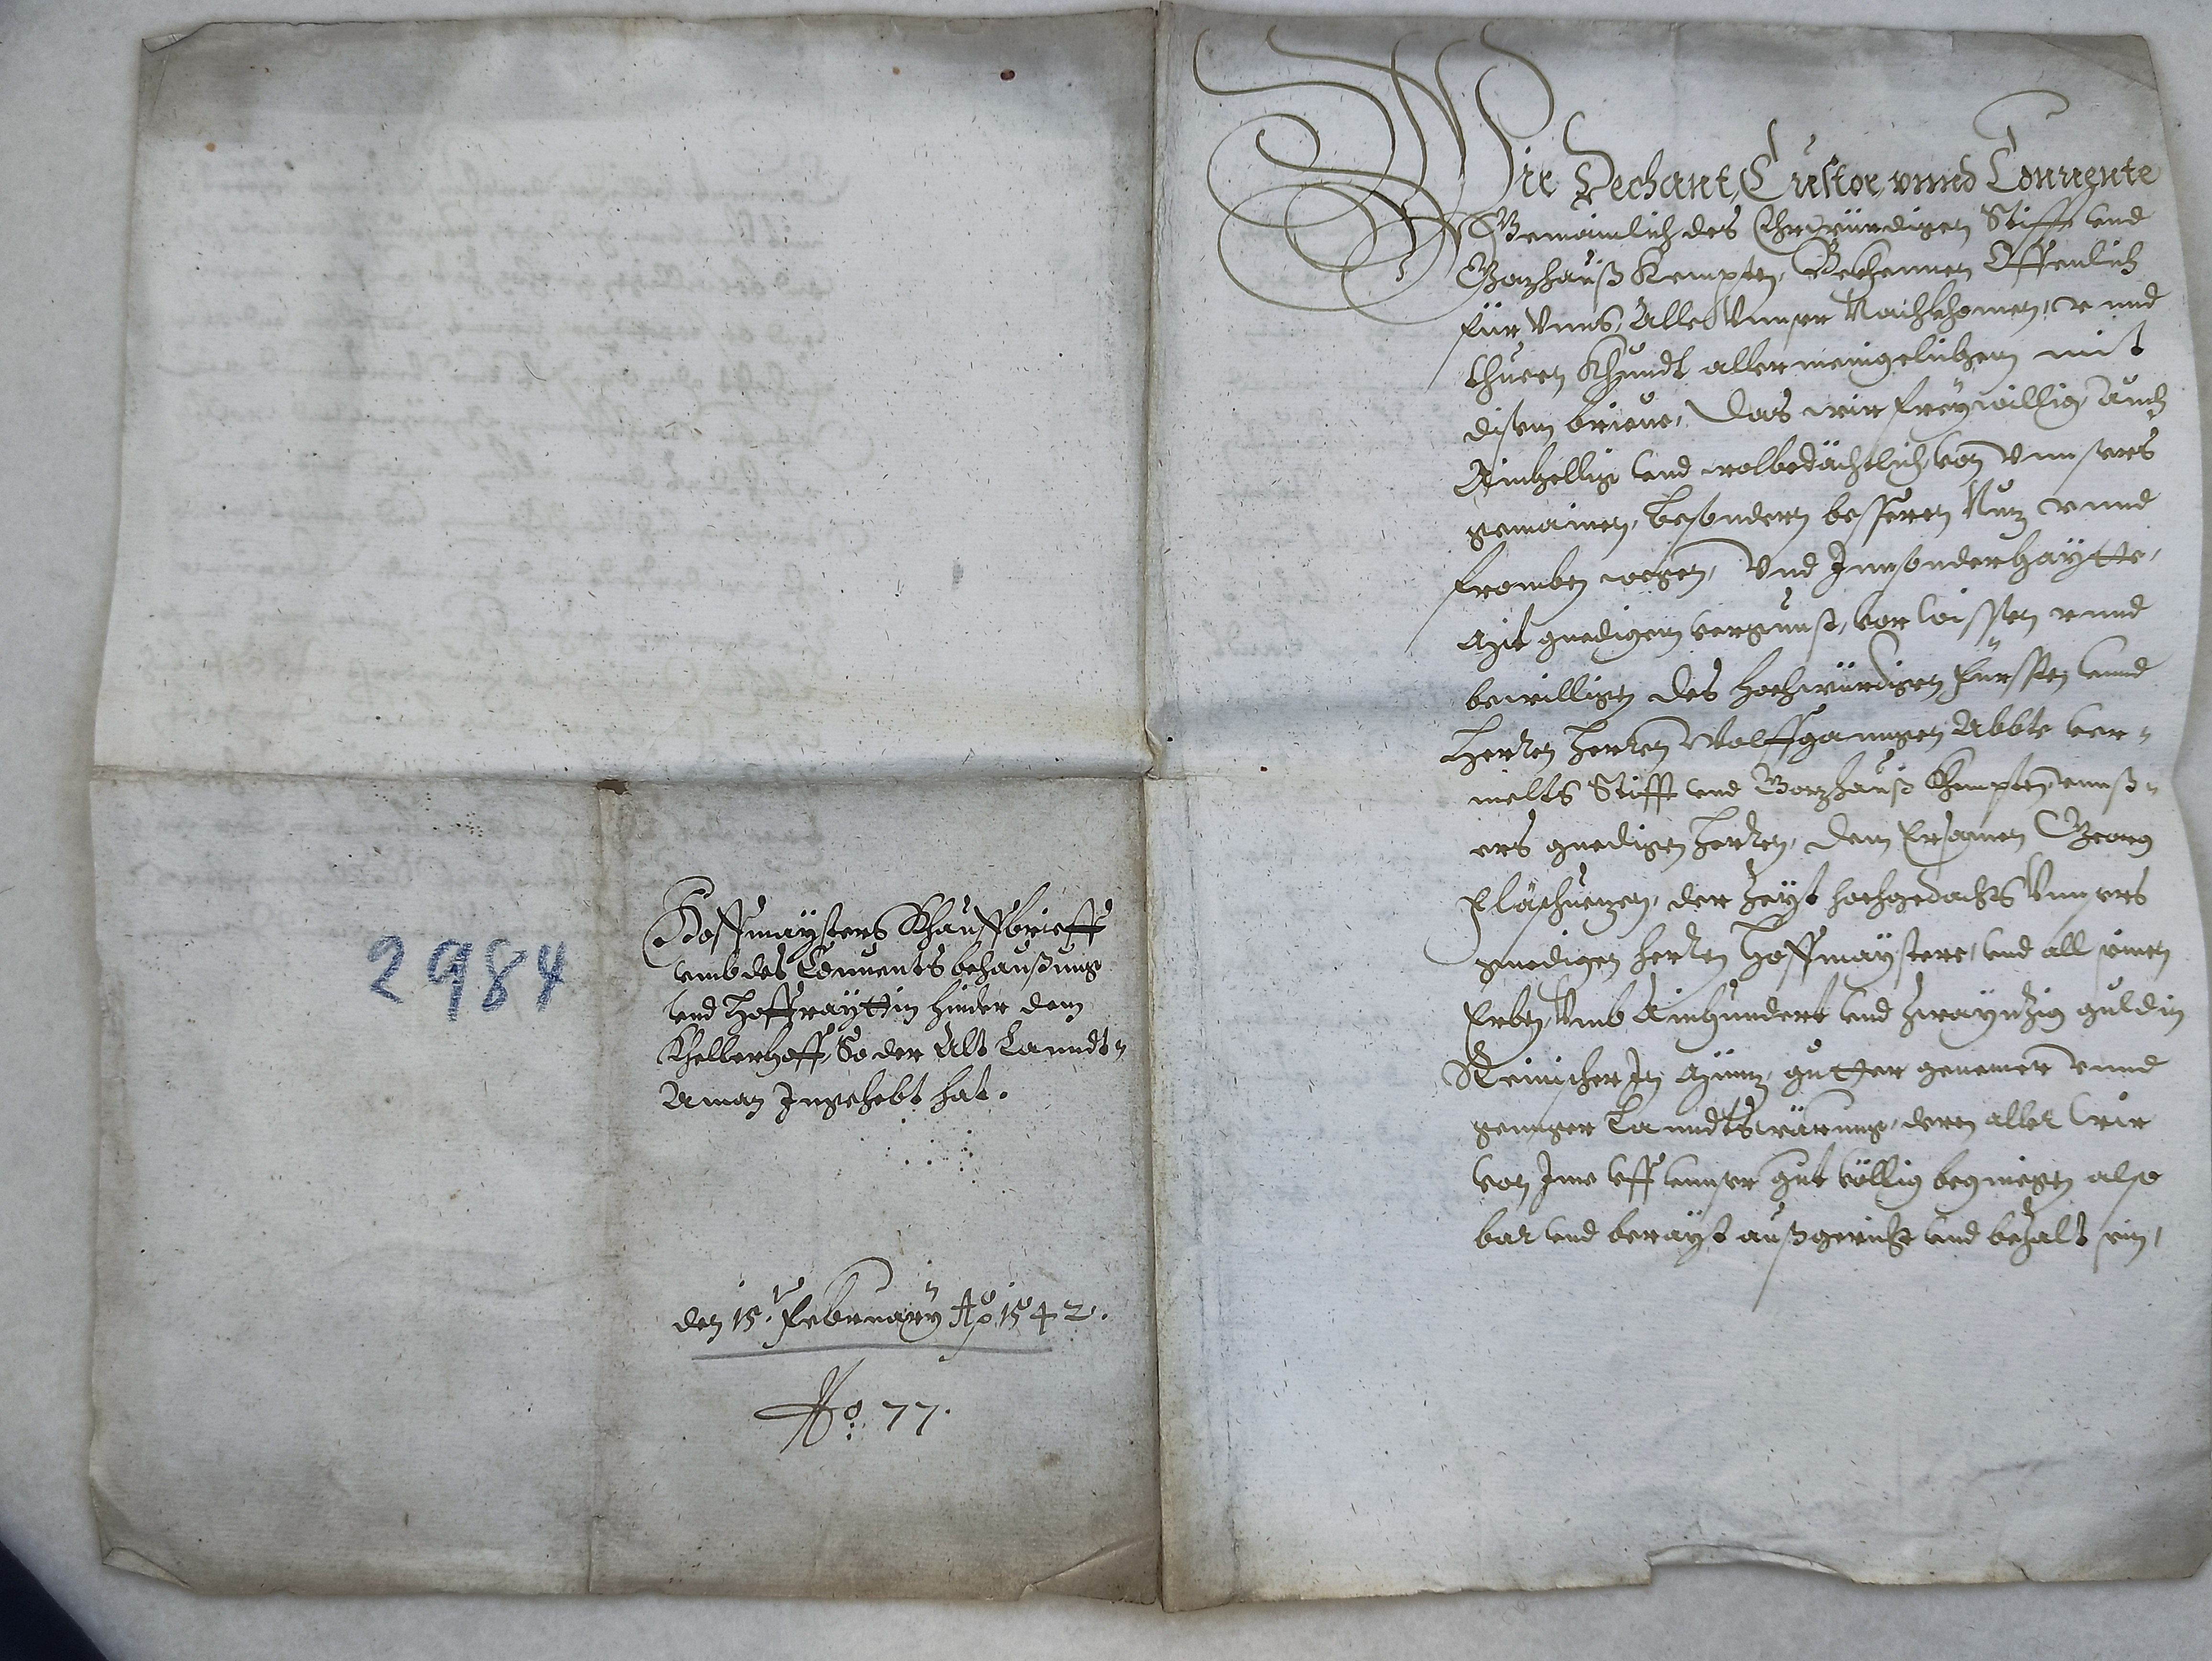 2984
Hoffmaysters Khauffbrieff
umb des Conuents behaußung
vnd Hoffrayttin hinder dem
Khellerhoff, So der Alt Lanndt-
Aman Ingehebt hat.
den 15. February Ao 1542.
No. 77.
Wir Dechant, Custor, vnnd Conuente
Gemainlich des Ehrwürdigen Stiffts vnd
Gozhauß Kempten, Bekhennen Offenlich
für vnns, Alle Vnnser Nachkhomen, vnnd
thuen Khundt allermenigelichem mit
disem brieue, Das wir freywillig, Auch
Ainhellig vnd wolbedächtlich, von vnnsers
gemainen, besondern bessern Nuz vnnd
fromben wegen, Vnd Innsonderhaytte,
Mit gnedigem vergunst, vor wissen vnnd
bewilligen des Hochwürdigen Fürssten vnnd
Herren Herren Wolffganngen Abbte ver-
melts Stifft vnd Gozhauß Khempten, vnnß-
ers gnedigen Herren, Dem Ersamen Georg
der Zeyt hochgedachts Vnnsers
gnedigen Herren Hoffmaystere, vnd all seinen
Erben, Vmb Ainhundert vnd Zwaynzig guldin
Reinischer In Münz, gutter genemer vnnd
genger Lanndtswärung, deren aller wir
von Ime vff vnnser gut völlig benuegen also
bar vnd berayt außgericht vnd bezalt sein,